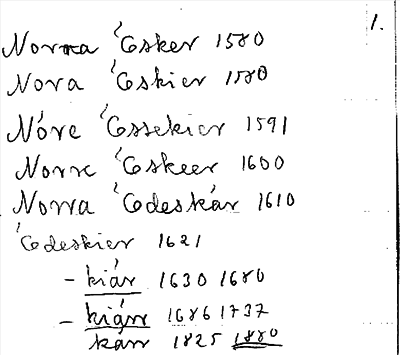 1.
Norrna Ésker 1580
Nora Éskier 1580
Nóre Éssekier 1591
Norre Éskeer 1600
Norra Édeskár 1610
Édeskier 1621
- kiár 1630 1680
- kiárr 1686 1737
kárr 1825 1880